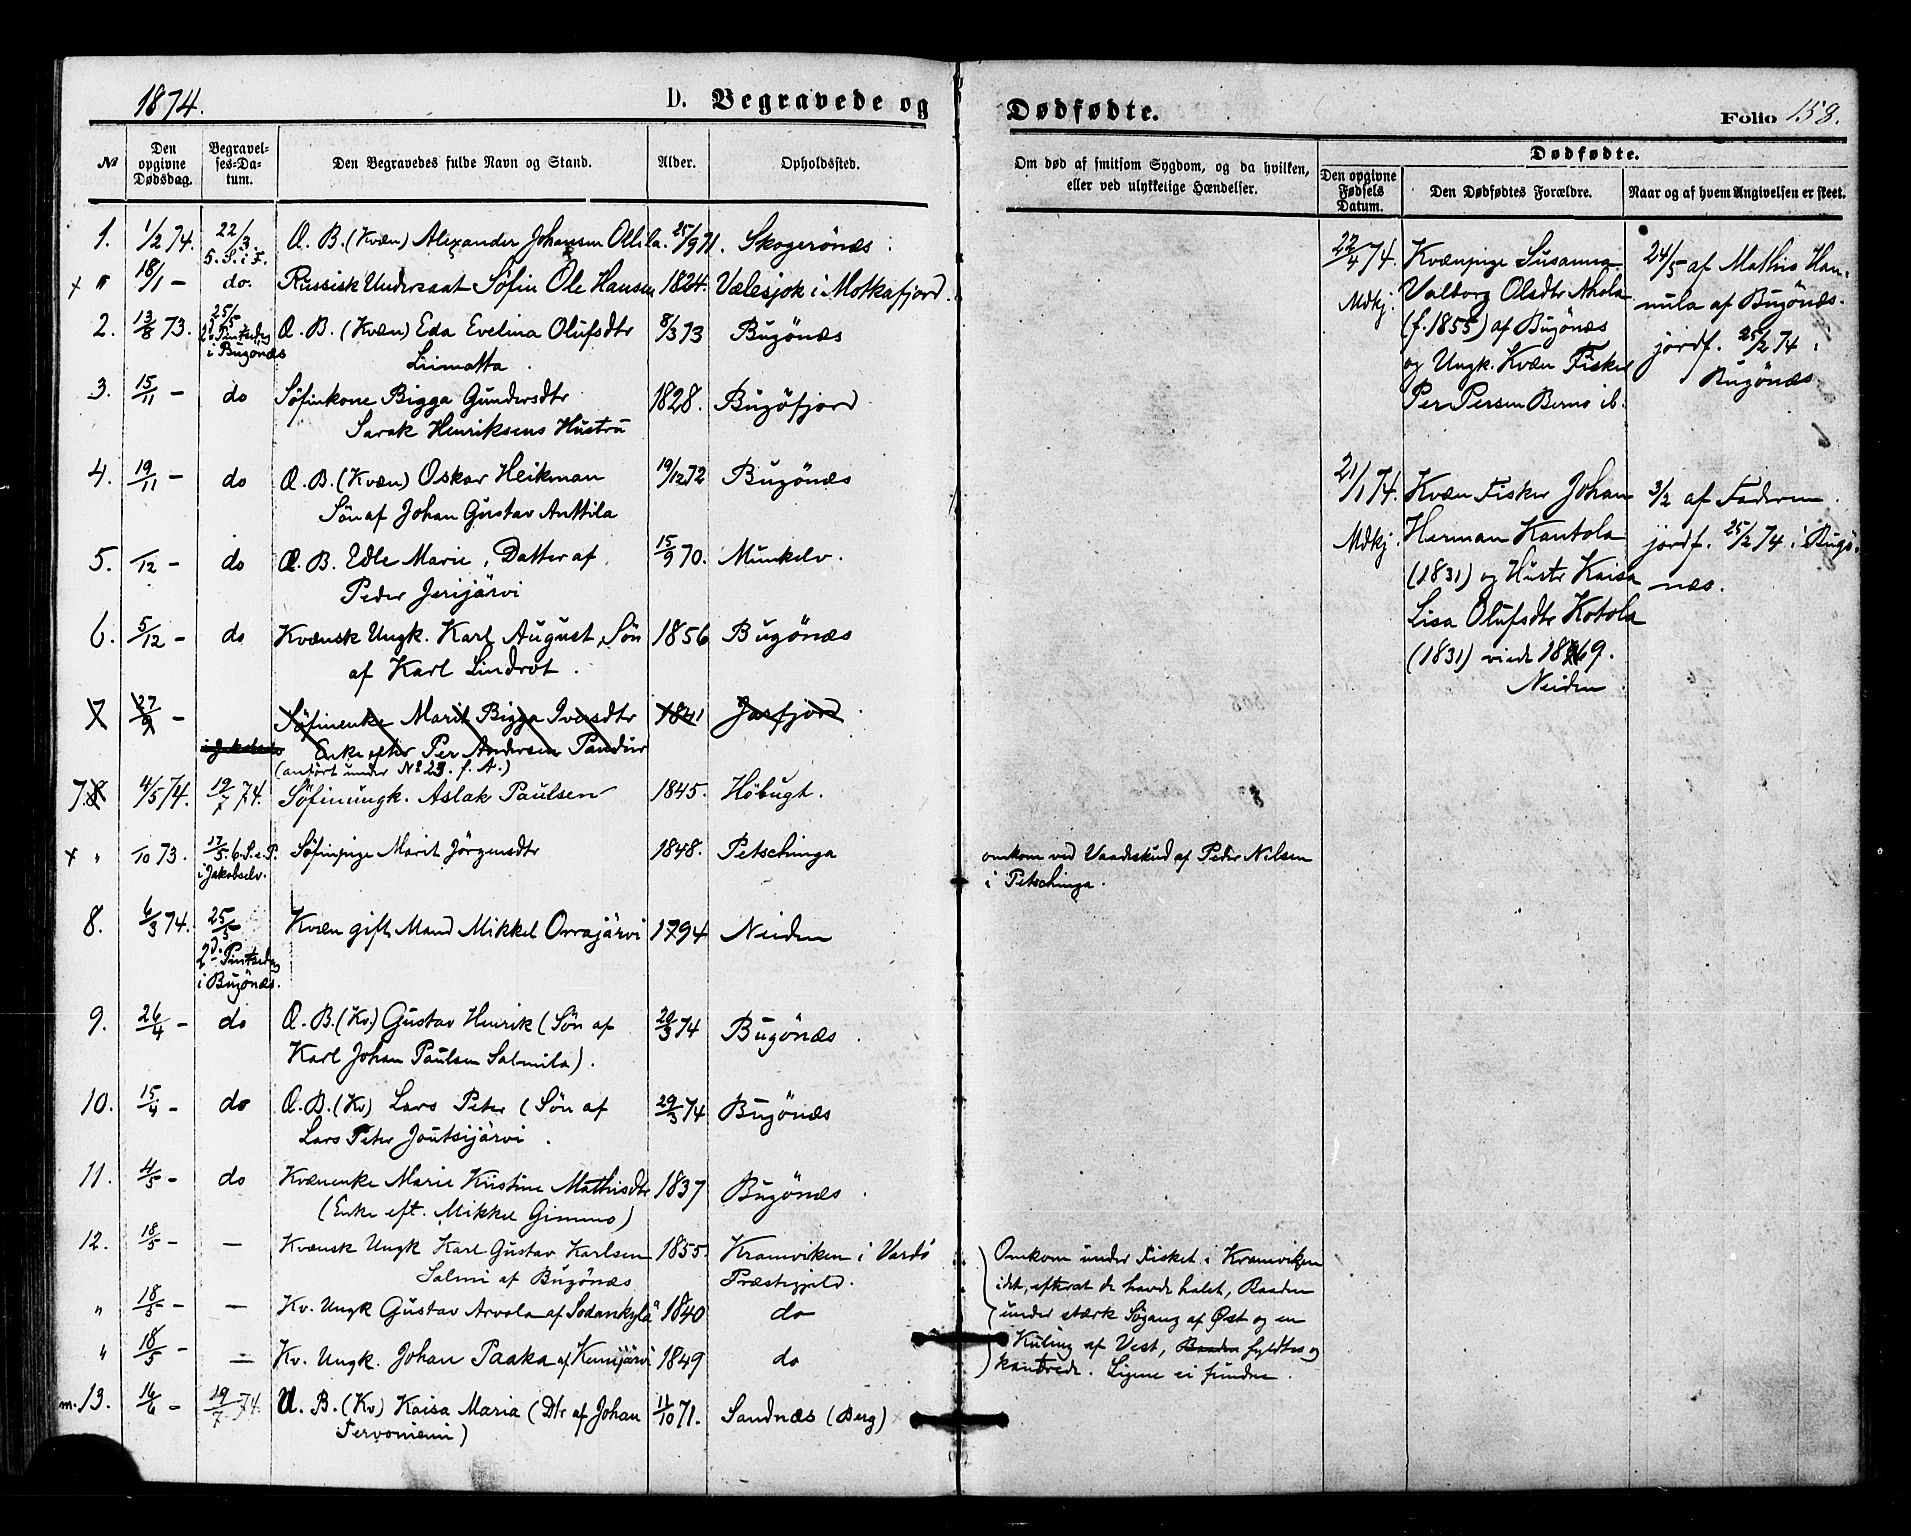 1874.
D. Begravede og
Dødfødte.
Folio 158.
№
Den opgivne Dødsdag.
Begravelses-Datum.
Den Begravedes fulde Navn og Stand.
Alder.
Opholdssted.
Om død af smitsom Sygdom, og da hvilken,
eller ved ulykkelige Hændelser.
Dødfødte.
Den opgivne Fødsels Datum.
Den Dødfødtes Forældre.
Naar og af hvem Angivelsen er skeet.
1. 1/2 74. 22/3 Æ. B. (Kvæn) Alexander Johansen Ollila. 25/9 71. Skogerönæs
5. S. i F.
x " 18/1 - do. Russisk Undersaat Söfin Ole Hansen 1824. Vælesjok i Motkafjord.
2. 13/8 73. 25/5 Æ. B. (Kvæn) Eda Evelina Olufsdtr 8/3 73 Bugönæs
2d Pintsedag
i Bugönæs
Liimatta.
3. 15/11 - do Söfinkone Bigga Gundersdtr 1828. Bugöfjord
Sarak Henriksens Hustru
4. 19/11 - do Æ. B. (Kvæn) Oskar Heikman 19/12 72 Bugönæs
Søn af Johan Gustav Anttila
5. /12 - do Æ. B. Edle Marie, Datter af 15/9 70. Munkelv.
Peder Jerijärvi
6. 5/12 - do Kvænsk Ungk. Karl August, Søn 1856 Bugönæs
af Karl Lindrot.
7 27/9 - Söfinenke Marit Bigga Iversdtr 1841 Jarfjord
i Jakobselv Enke efter Per Andersen Pandur
(anført under No 23. f. A.)
7. 8 4/5 74. 19/7 74. Söfinungk. Aslak Paulsen 1845. Höbugt.
x " /10 73. 17/5 6. S. e. P. Söfinpige Marit Jörgensdtr 1848. Petschinga
i Jakobselv.
omkom ved Vaadeskud af Peder Nilsen
i Petschinga.
8. 6/3 74. 25/5 Kvæn gift Mand Mikkel Orrajärvi 1794 Neiden
2d Pintsedag
i Bugönæs.
9. 26/4 - do Æ. B. (Kv.) Gustav Henrik (Søn af 20/3 74 Bugönæs
Karl Johan Paulsen Salmila).
10. 15/4 - do Æ. B. (Kv) Lars Peter (Søn af 29/3 74 Bugönæs
Lars Peter Joutsijärvi.
11. 4/5 - do Kvænenke Marie Kristine Mathisdtr 1837 Bugönæs
(Enke eft. Mikkel Gimmo)
12. 18/5 - - Kvænsk Ungk Karl Gustav Karlsen 1855. Kramviken i Vardö
Salmi af Bugönæs Præstegjeld.
" 18/5 - - Kv. Ungk Gustav Arvola af Sodankylä 1840 do
" 18/5 - Kv. Ungk. Johan Paaka af Kemijärvi 1849 do
Omkom under Fisket i Kramviken
idet, efterat de havde halet, Baaden
under stærk Søgang af Øst og en
Kuling af Vest, Baaden fyldtes og
kantrede. Ligene ei fundne.
m. 13. 16/6 - 19/7 74. U. B. (Kv) Kaisa Maria (Dtr af Johan 11/10 71. Sandnæs (Berg)
Tervoniemi)
22/4 74. Kvænpige Susanna 24/5 af Mathis Han-
Mdkj. Valborg Olsdtr Ahola nula af Bugönæs.
(f. 1855) af Bugönæs jordf. 25/2 74 i
og Ungk. Kvæn Fisker Bugönæs
Per Persen Berno ib.
21/1 74. Kvæn Fisker Johan 3/2 af Faderen.
Mdkj. Herman Kantola jordf. 25/2 74 i Bugö-
(1831) og Hustr Kaisa næs.
Lisa Olufsdtr Kotola
(1831) viede 1869.
Neiden.